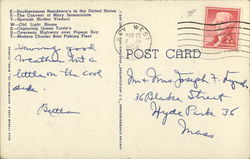 K—Southernmost Residence in the United States
E—The Convent of Mary Immaculate
Y—Spanish Harbor Viaduct
W—Old Light House
E—Capturing Green Turtle's
S—Overseas Highway over Pigeon Key
T—Modern Charter Boat Fishing Fleet
KEY WEST
MAR 22
POST CARD
2¢
Having good
weather but a
little on the cool
side.
Bertha
Mr & Mrs. Joseph F.
36 Blake Street
Hyde Park 36
Mass